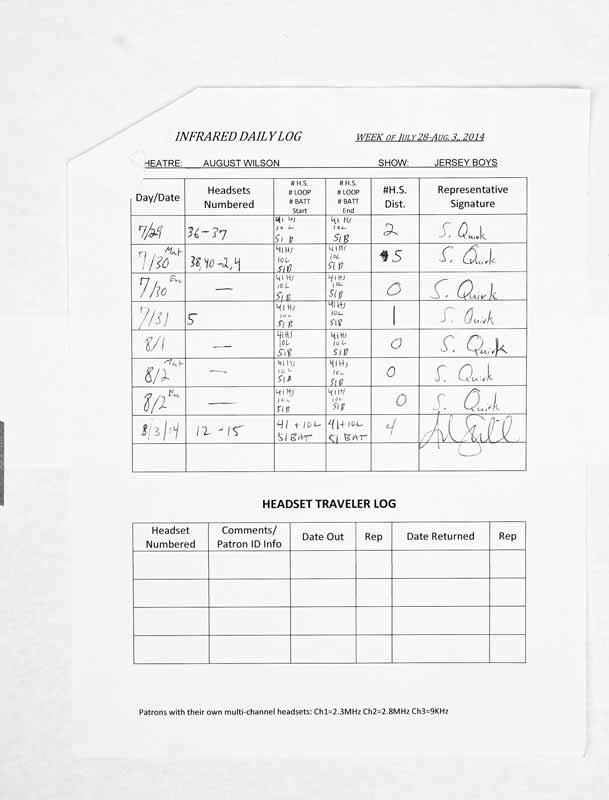 INFRARED DAILY LOG WEEK OF JULY 28-AUG. 3,. 2014
HEATRE: AUGUST WILSON SHOW: JERSEY BOYS
Day/Date Headsets Numbered # H.S. # LOOP # BATT Start # H.S. # LOOP # BATT End #H.S. Dist. Representative Signature
7/29 36-37 41 HS 10 L 51 B 41 HS 10L 51B 2 S. Quirk
7/30 Mat 38,40-2,4 41HS 10L 51B 41HS 10L 51B 5 S. Quirk
7/30 Eve — 41HS 10L 51B 41HS 10L 51B 0 S. Quirk
7/31 5 41HS 10L 51B 41HS 10L 51B 1 S. Quirk
8/1 — 41HS 10L 51B 41HS 10L 51B 0 S. Quirk
8/2 Mat — 41HS 10L 51B 41HS 10L 51B 0 S. Quirk
8/2 Eve — 41HS 10L 51B 41HS 10L 51B 0 S. Quirk
8/3/14 12-15 41 + 10L 51 BAT 41+10L 51 BAT 4
HEADSET TRAVELER LOG
Headset Numbered Comments/ Patron ID Info Date Out Rep Date Returned Rep
Patrons with their own multi-channel headsets: Ch1=2.3MHz Ch2=2.8MHz Ch3=9KHz